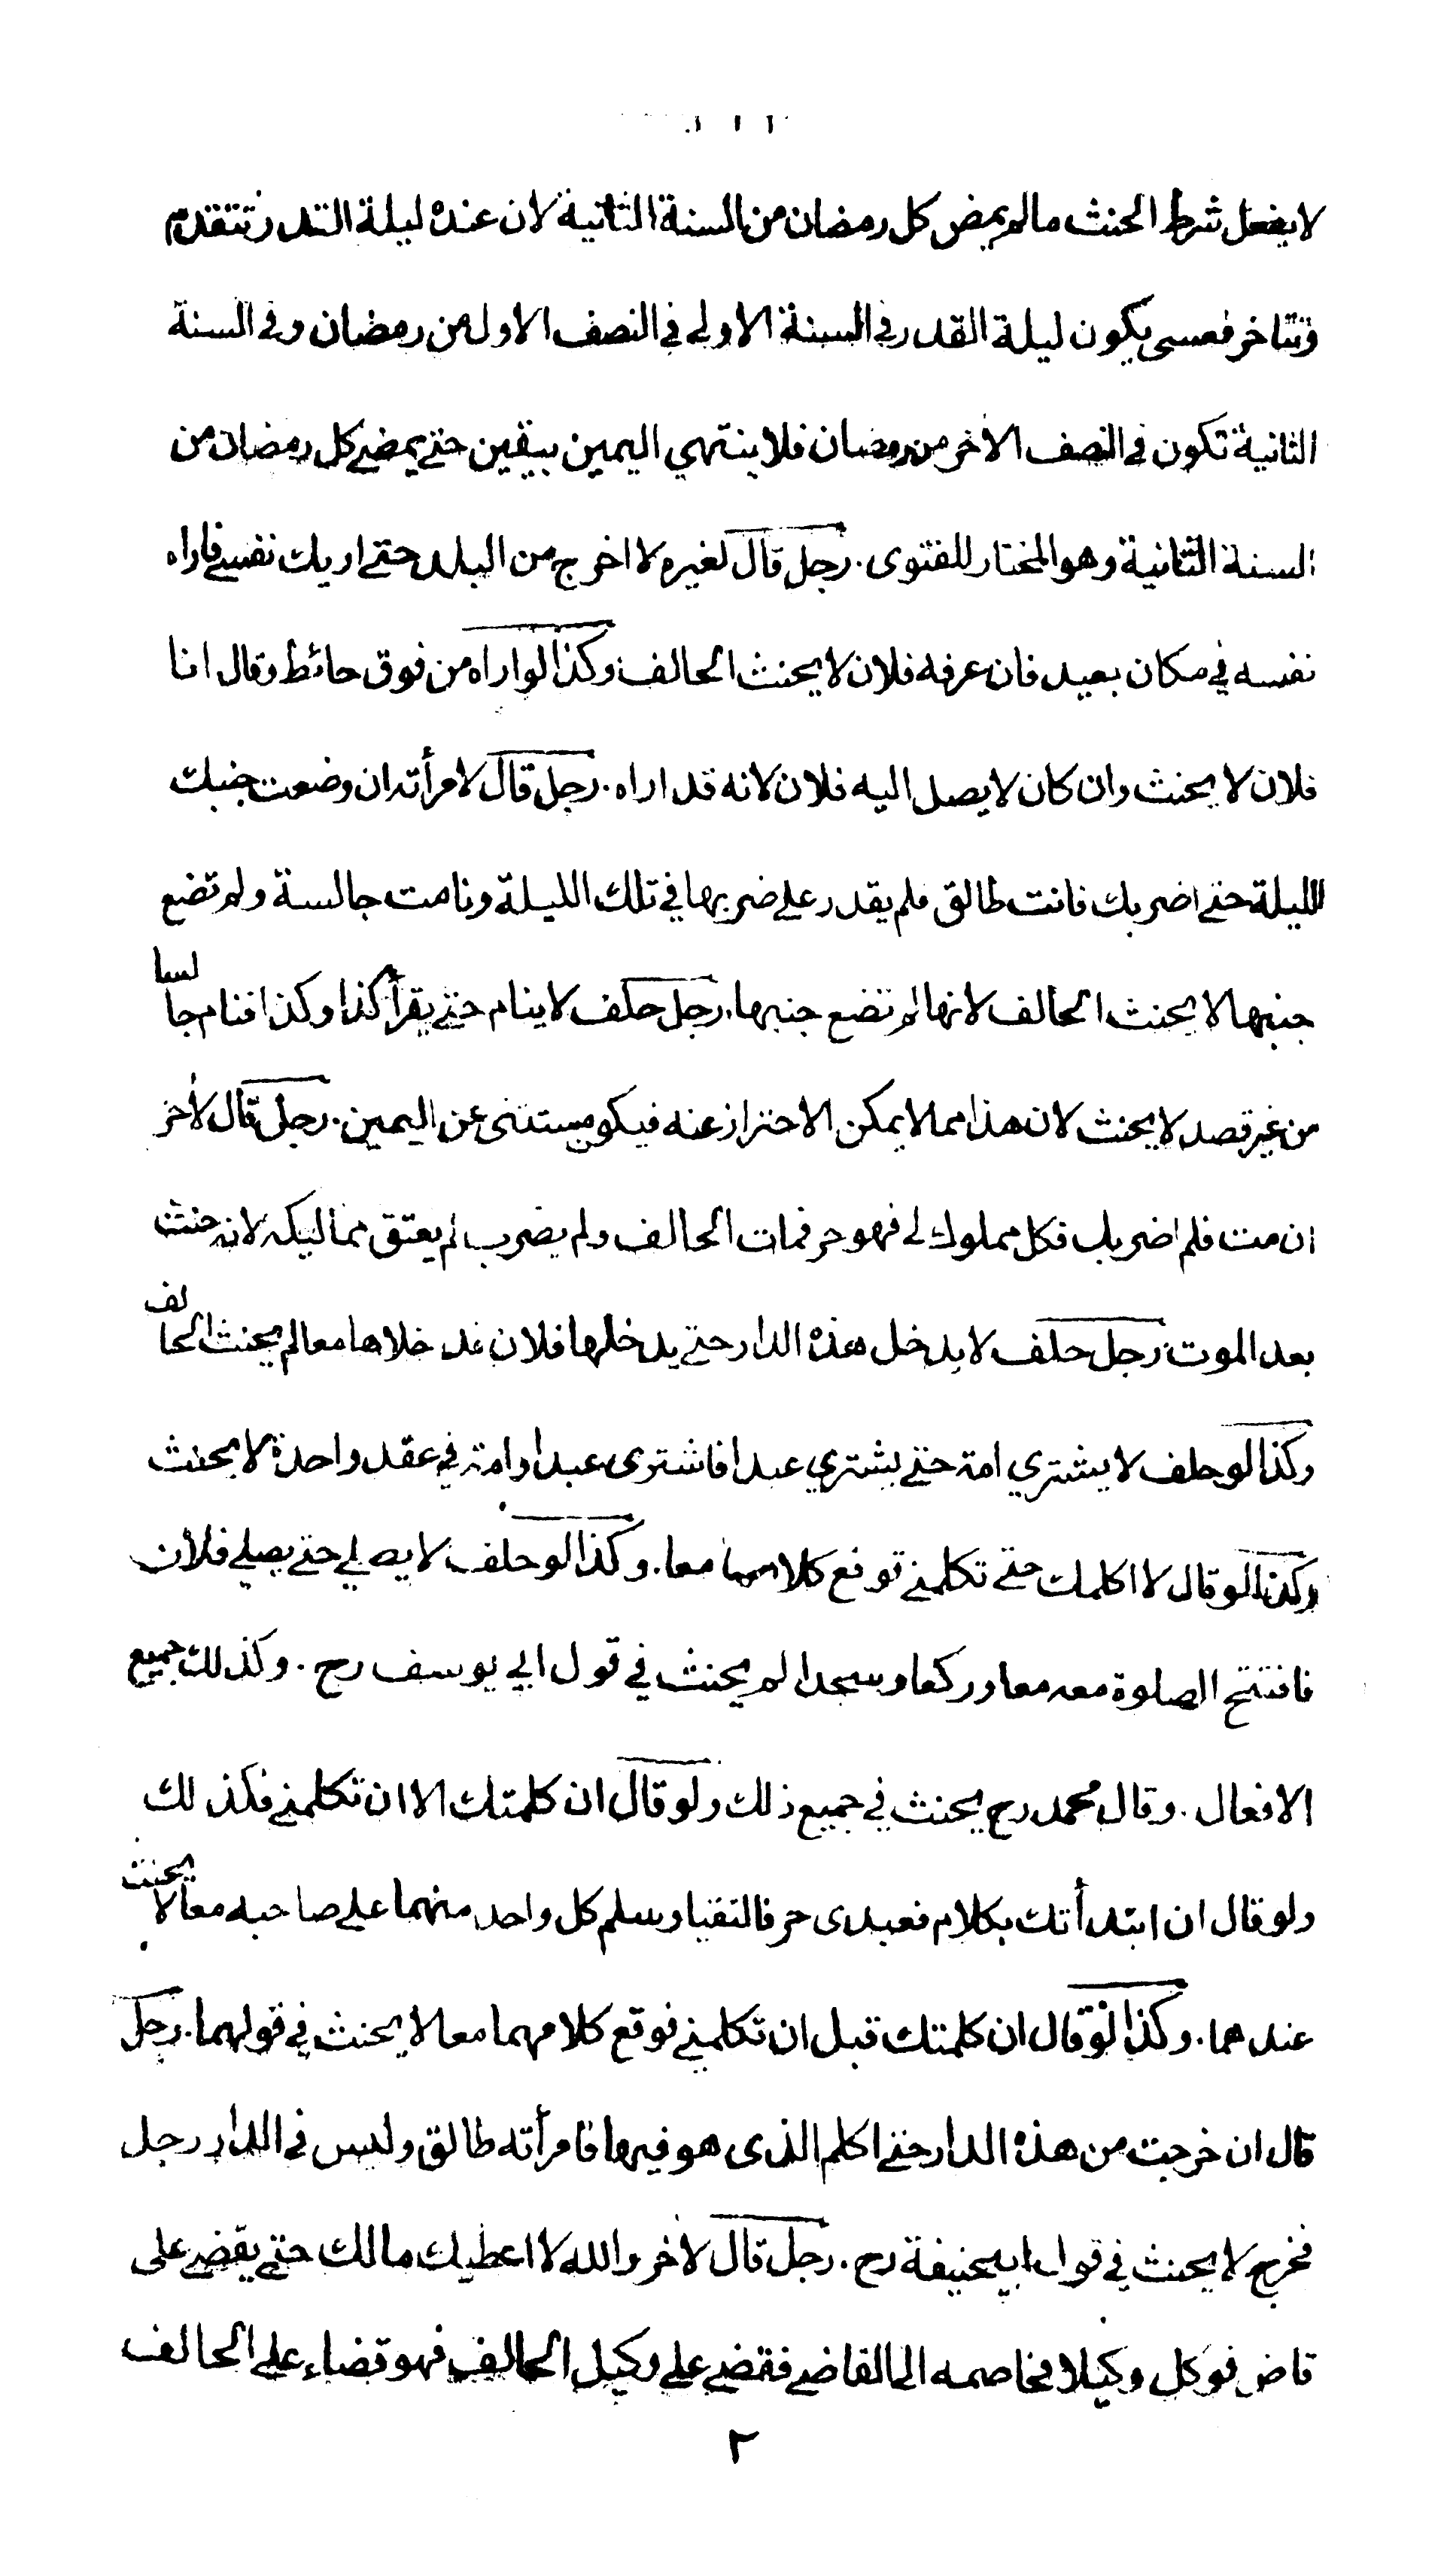 لا يفعل شرط الحنث مالم يمض كل رمضان من السنة الثانية لان عنده ليلة القدر تتقدم
وتتاخر فعسى يكون ليلة القدر في السنة الاولى في النصف الاول من رمضان وفي السنة
الثانية تكون في النصف الاخر من رمضان فلا ينتهي اليمين بيقين حتى يمضي كل رمضان من
السنة الثانية وهو المختار للفتوى. رجل قال لغيره لا اخرج من البلد حتى اريك نفسي فاراه
نفسه في مكان بعيد فان عرفه فلان لا يحنث الحالف وكذا لو اراه من فوق حائط وقال انا
فلان لا يحنث وان كان لا يصل اليه فلان لانه قد اراه. رجل قال لامرأته ان وضعت جنبك
الليلة حتى اضربك فانت طالق فلم يقدر على ضربها في تلك الليلة ونامت جالسة ولم تضع
جنبها لا يحنث الحالف لانها لم تضع جنبها. رجل حلف لا ينام حتى يقرأ كذا وكذا فنام جالسا
من غير قصد لا يحنث لان هذا مما لا يمكن الاحتراز عنه فيكون مستثنى عن اليمين. رجل قال لآخر
ان مت فلم اضربك فكل مملوك لي فهو حر فمات الحالف ولم يضرب لم يعتق مماليكه لانه حنث
بعد الموت رجل حلف لا يدخل هذه الدار حتى يدخلها فلان فدخلاها معا لم يحنث الحالف
وكذا لو حلف لا يشتري امة حتى يشتري عبدا فاشترى عبدا وامة في عقد واحدة لا يحنث
وكذا لو قال لا اكلمك حتى تكلمني فوقع كلامهما معا. وكذا لو حلف لا يصلي حتى يصلي فلان
فافتتح الصلوة معه معا وركعا وسجدا لم يحنث في قول ابي يوسف رح. وكذلك جميع
الافعال. وقال محمد رح يحنث في جميع ذلك ولو قال ان كلمتك الا ان تكلمني فكذلك
ولو قال ان ابتدأتك بكلام فعبدى حر فالتقيا وسلم كل واحد منهما على صاحبه معا لا يحنث
عندهما. وكذا لو قال ان كلمتك قبل ان تكلمني فوقع كلامهما معا لا يحنث في قولهما. رجل
قال ان خرجت من هذه الدار حتى اكلم الذى هو فيها فامرأته طالق وليس في الدار رجل
فخرج لا يحنث في قول ابي حنيفة رح. رجل قال لآخر والله لا اعطيك مالك حتى يقضي على
قاض فوكل وكيلا فخاصمه الى القاضي فقضي على وكيل الحالف فهو قضاء على الحالف
٢